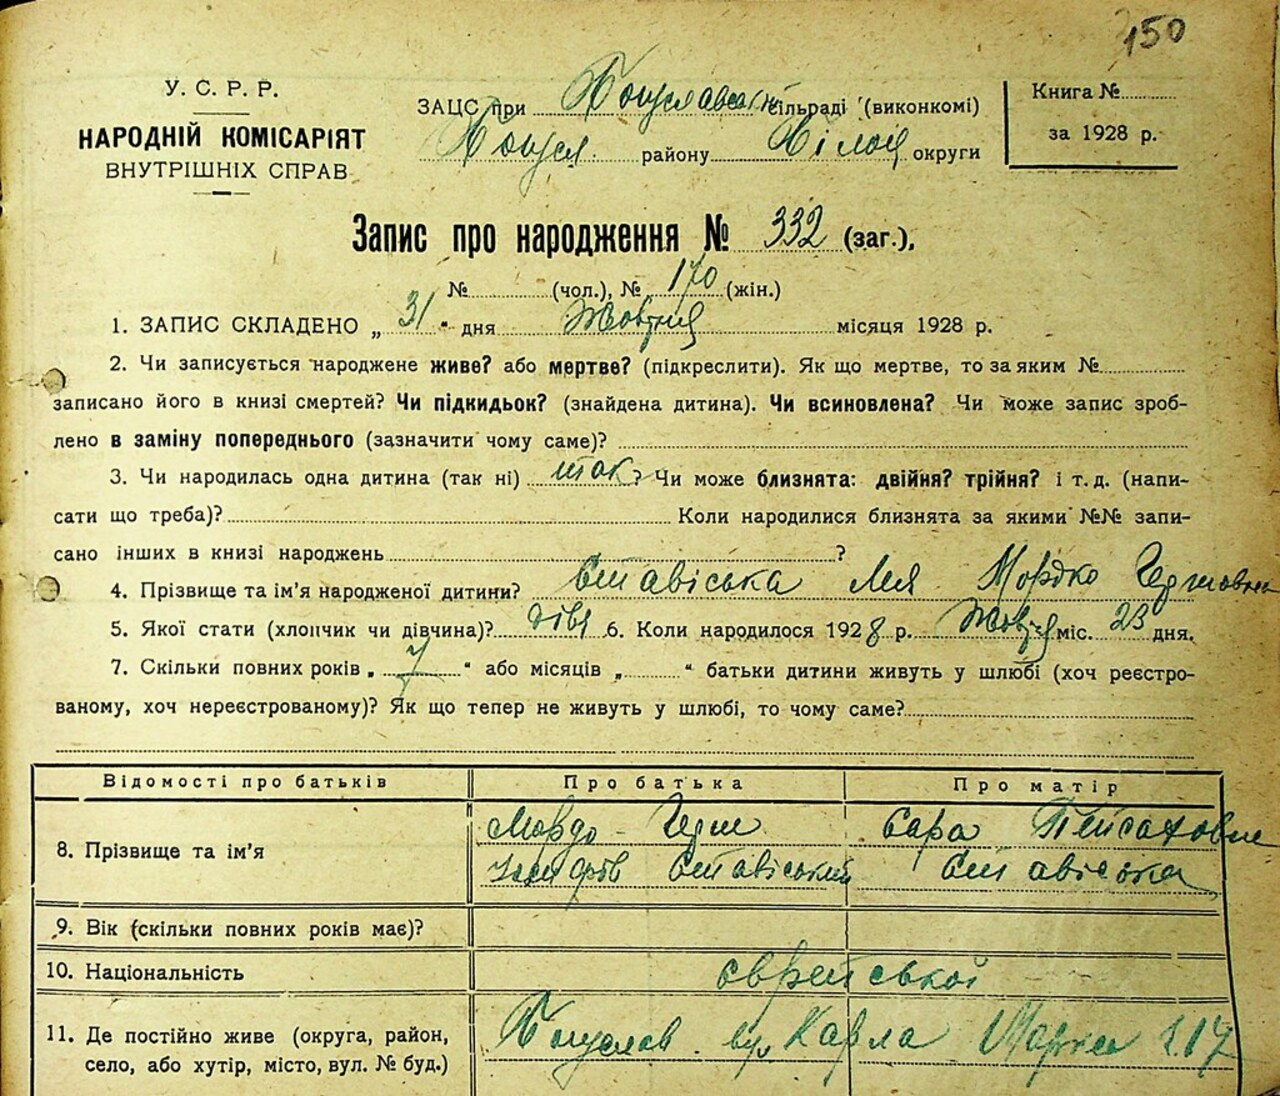 150
У. С. Р. Р.
НАРОДНІЙ КОМІСАРІЯТ
ВНУТРІШНІХ СПРАВ
ЗАЦС при Богуславськ сільраді (виконкомі)
Богусл. району Білоц округи
Книга №
за 1928 р.
Запис про народження № 332 (заг.),
№ (чол.), № 170 (жін.)
1. ЗАПИС СКЛАДЕНО „ 31 " дня Жовтня місяця 1928 р.
2. Чи записується народжене живе? або мертве? (підкреслити). Як що мертве, то за яким №
записано його в книзі смертей? Чи підкидьок? (знайдена дитина). Чи всиновлена? Чи може запис зроб-
лено в заміну попереднього (зазначити чому саме)?
3. Чи народилась одна дитина (так ні) так? Чи може близнята: двійня? трійня? і т. д. (напи-
сати що треба)? Коли народилися близнята за якими №№ запи-
сано інших в книзі народжень ?
4. Прізвище та ім'я народженої дитини? Ставіська Лея Мордко Гершовна
5. Якої стати (хлопчик чи дівчина)? дівч 6. Коли народилося 1928 р. Жовтня міс. 23 дня.
7. Скільки повних років „ 7 " або місяців „ " батьки дитини живуть у шлюбі (хоч реєстро-
ваному, хоч нереєстрованому)? Як що тепер не живуть у шлюбі, то чому саме?
Відомості про батьків Про батька Про матір
8. Прізвище та ім'я
Мордо-Герш Сара Пейсаховна
Ставіський Ставіська
9. Вік (скільки повних років має)?
10. Національність єврейської
11. Де постійно живе (округа, район,
село, або хутір, місто, вул. № буд.)
Богуслав. вул Карла Маркса 17